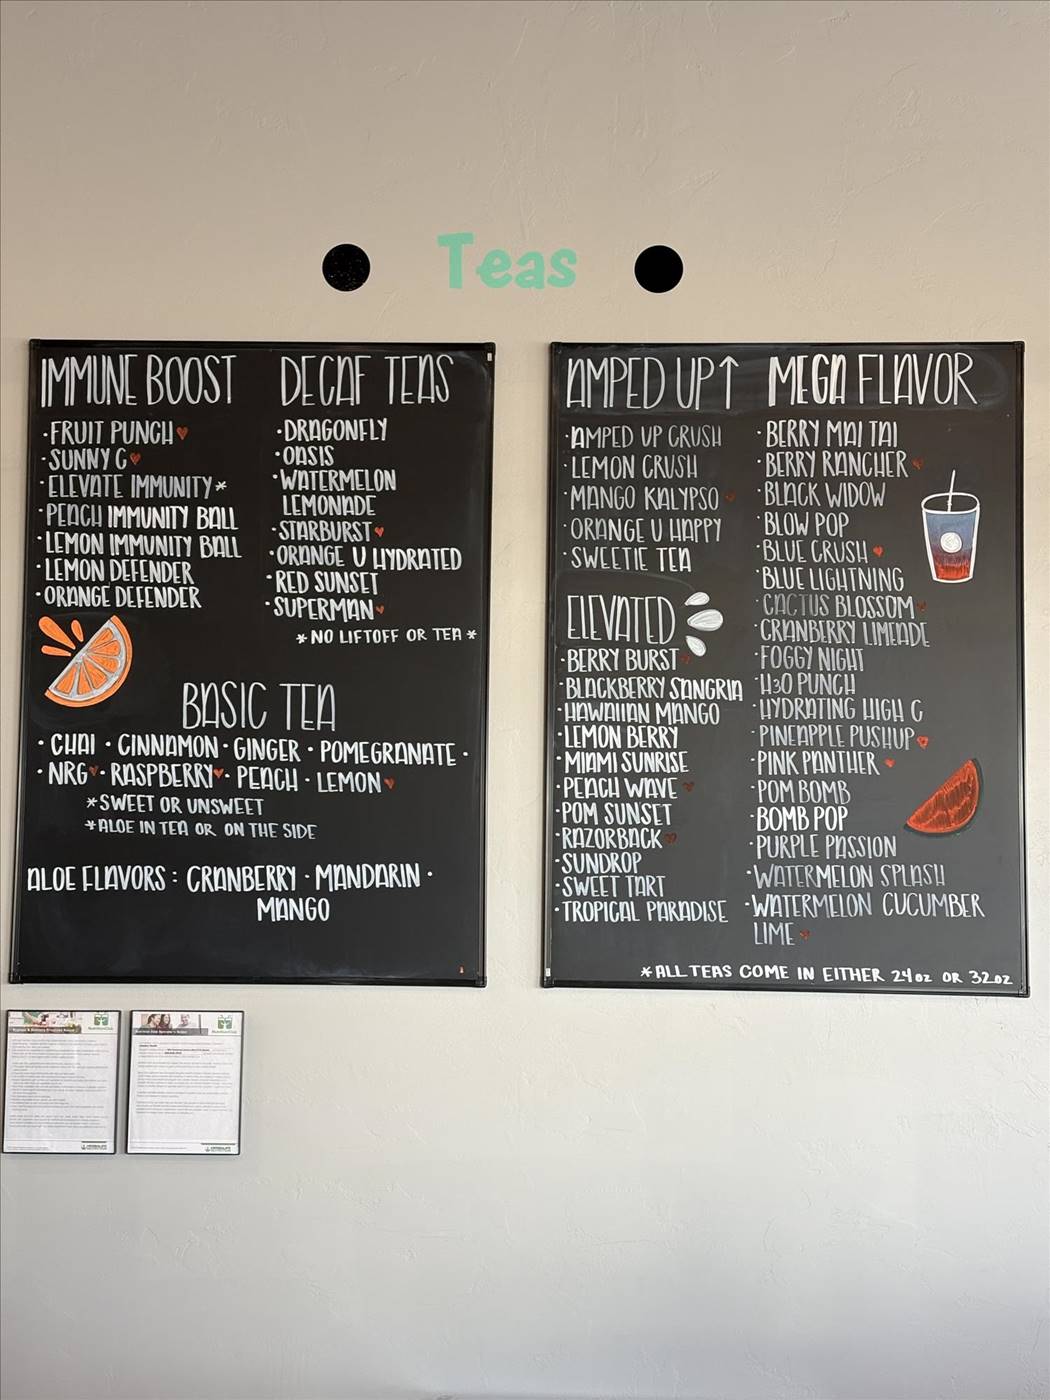 Teas
IMMUNE BOOST
·FRUIT PUNCH♥
·SUNNY C♥
·ELEVATE IMMUNITY*
·PEACH IMMUNITY BALL
·LEMON IMMUNITY BALL
·LEMON DEFENDER
·ORANGE DEFENDER
DECAF TEAS
·DRAGONFLY
·OASIS
·WATERMELON
LEMONADE
·STARBURST♥
·ORANGE U HYDRATED
·RED SUNSET
·SUPERMAN♥
*NO LIFTOFF OR TEA*
BASIC TEA
·CHAI·CINNAMON·GINGER·POMEGRANATE·
·NRG♥·RASPBERRY♥·PEACH·LEMON♥
*SWEET OR UNSWEET
*ALOE IN TEA OR ON THE SIDE
ALOE FLAVORS: CRANBERRY·MANDARIN·
MANGO
AMPED UP↑
·AMPED UP CRUSH
·LEMON CRUSH
·MANGO KALYPSO♥
·ORANGE U HAPPY
·SWEETIE TEA
ELEVATED
·BERRY BURST♥
·BLACKBERRY SANGRIA
·HAWAIIAN MANGO
·LEMON BERRY
·MIAMI SUNRISE
·PEACH WAVE♥
·POM SUNSET
·RAZORBACK♥
·SUNDROP
·SWEET TART
·TROPICAL PARADISE
MEGA FLAVOR
·BERRY MAI TAI
·BERRY RANCHER♥
·BLACK WIDOW
·BLOW POP
·BLUE CRUSH♥
·BLUE LIGHTNING
·CACTUS BLOSSOM♥
·CRANBERRY LIMEADE
·FOGGY NIGHT
·H3O PUNCH
·HYDRATING HIGH C
·PINEAPPLE PUSHUP♥
·PINK PANTHER♥
·POM BOMB
·BOMB POP
·PURPLE PASSION
·WATERMELON SPLASH
·WATERMELON CUCUMBER
LIME♥
*ALL TEAS COME IN EITHER 24oz OR 32oz